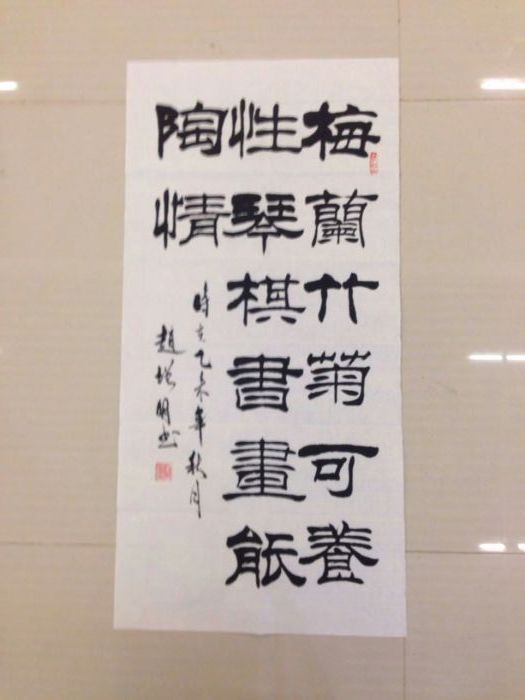 梅蘭竹菊可養
性琴棋書畫能
陶情
時在乙未年秋月
趙增明書